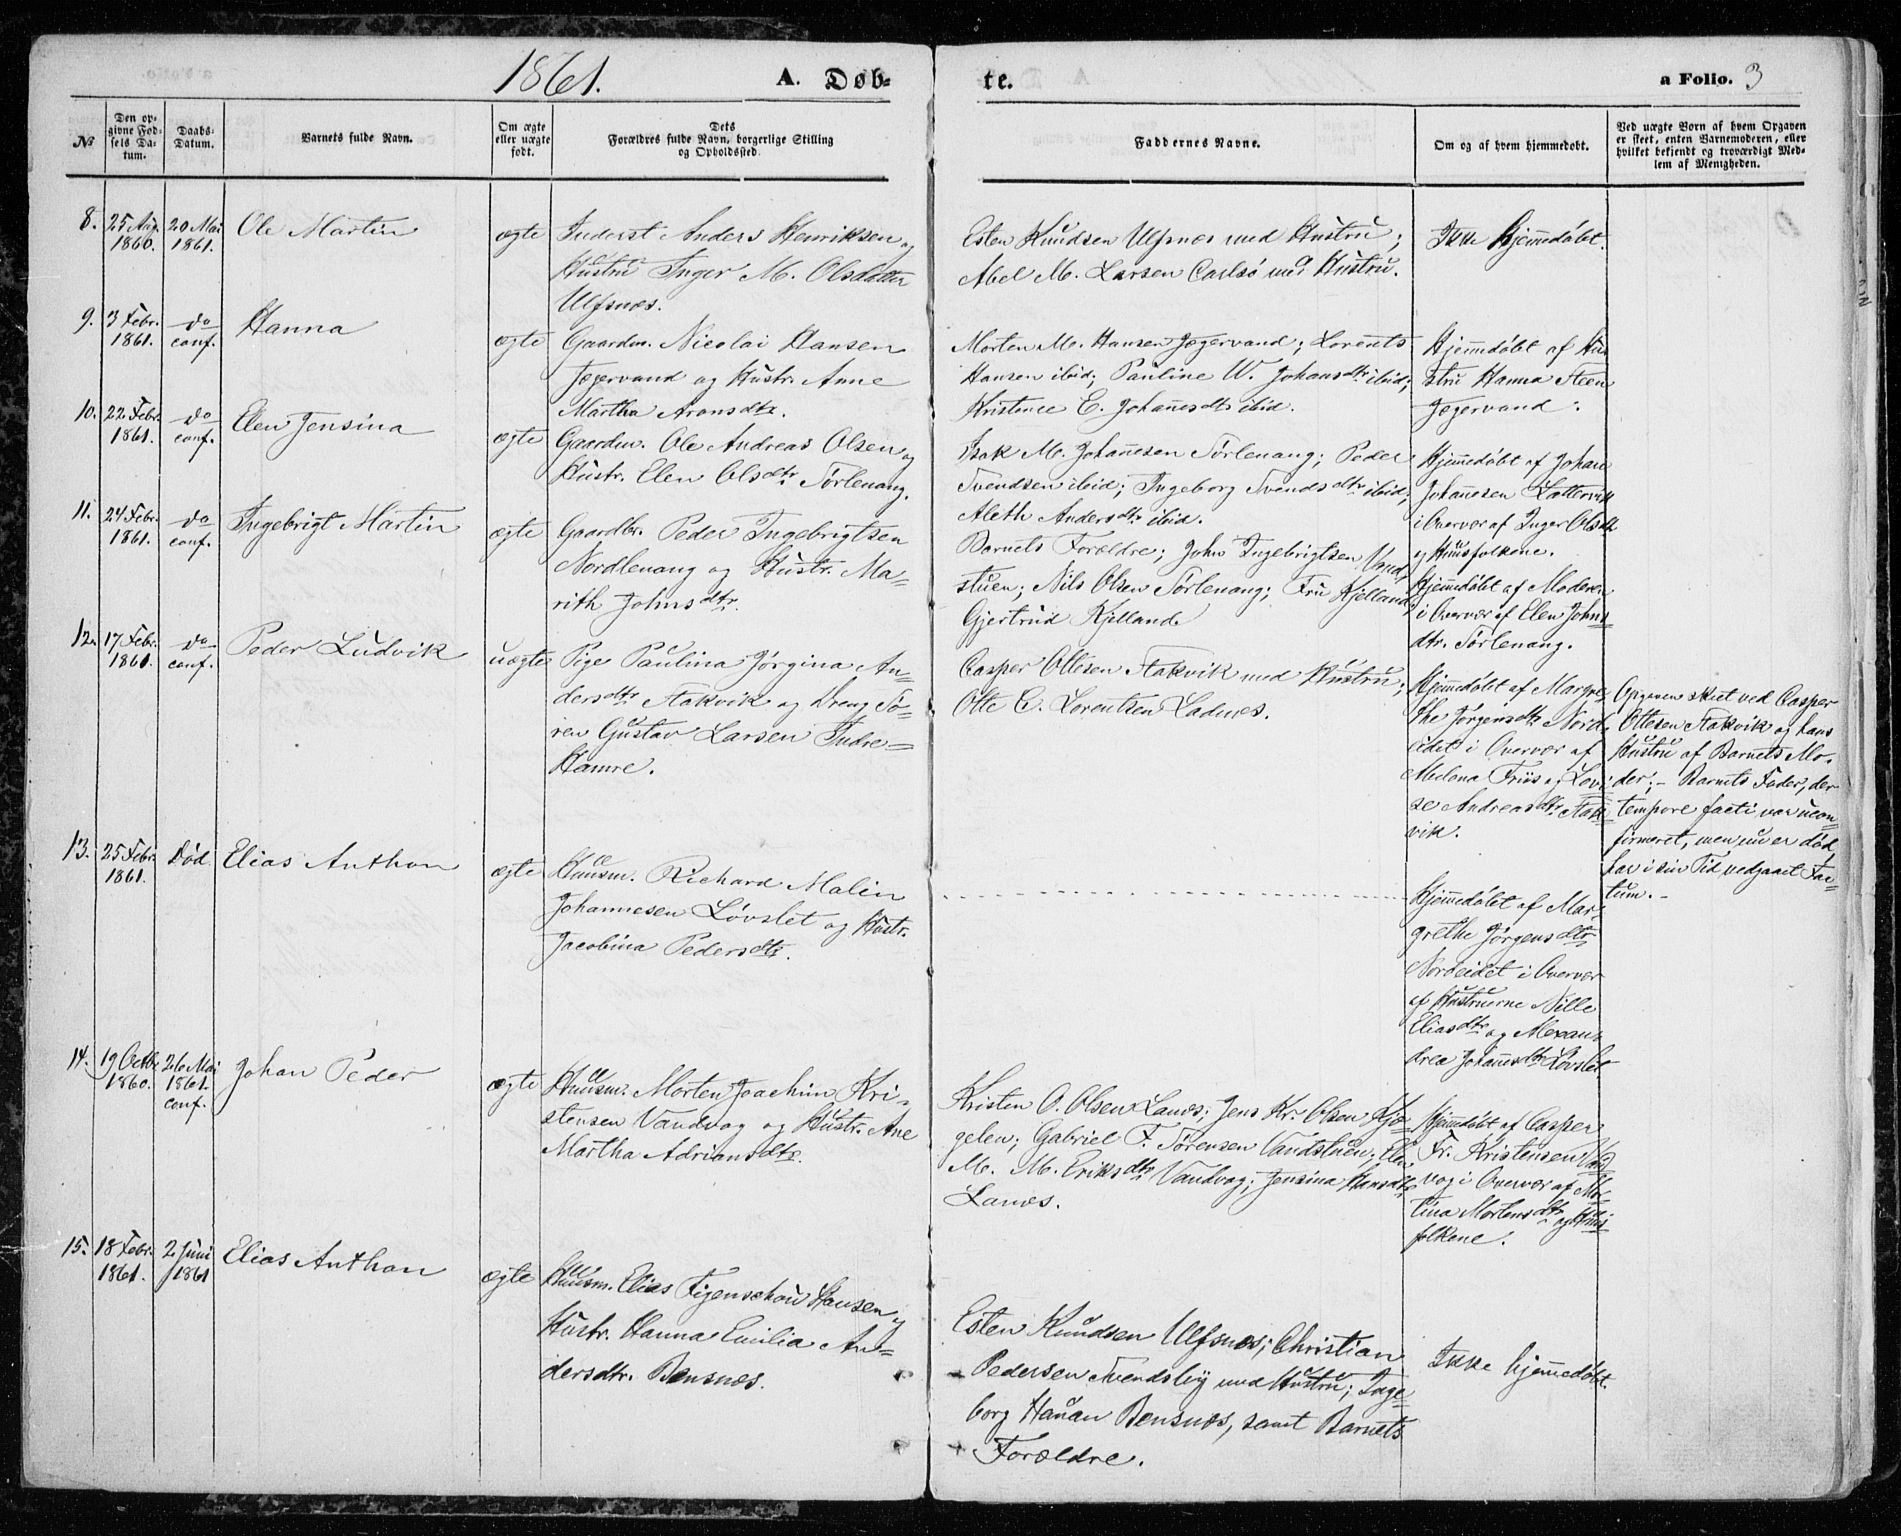 1861. A. Døb-
te. a Folio. 3
№
Den op-
givne Fød-
sels Da-
tum.
Daabs-
Datum.
Varnets fulde Navn.
Om ægte
eller uægte
født.
Dets
Forældres fulde Navn, borgerlige Stilling
og Opholdssted.
Faddernes Navne.
Om og af hvem hjemmedøbt.
Ved uægte Børn af hvem Opgaven
er skeet, enten Barnemoderen, eller
hvilket bekjendt og troværdigt Med-
lem af Menigheden.
8.
25 Aug.
1860.
20 Mai
1861.
Ole Martin
ægte
Inderst Anders Henriksen og
Hustru Inger M. Olsdatter
Ulfsnæs.
Esten Knudsen Ulfsnæs med Hustru;
Abel M. Larsen Carlsö med Hustru.
Ikke Hjemmedøbt.
9.
3 Febr.
1861.
do
conf.
Hanna
ægte
Gaardm. Nicolai Hansen
Jægervand og Hustr. Anne
Martha Aronsdtr.
Morten M. Hansen Jægervand; Lorents
Hansen ibid; Pauline W. Johansdtr ibid;
Kristence C. Johannesdtr ibid.
Hjemmedøbt af Hu-
stru Hanna Steen
Jægervand.
10.
22 Febr.
1861.
do
conf.
Elen Jensina
ægte
Gaardm. Ole Andreas Olsen og
Hustr. Elen Olsdtr. Sørlenang.
Isak M. Johannesen Sørlenang; Peder
Svendsen ibid; Ingeborg Svendsdtr ibid;
Aleth Andersdtr ibid.
Hjemmedøbt af Johan
Johannesen Lattervik
i Overvær af Inger Olsdtr
og Huusfolkene.
11.
24 Febr.
1861.
do
conf.
Ingebrigt Martin
ægte
Gaardbr. Peder Ingebrigtsen
Nordlenang og Hustr. Ma-
rith Johnsdtr.
Barnets Forældre; John Ingebrigtsen Vand-
stuen; Nils Olsen Sørlenang; Fru Kjelland;
Gjertrud Kjelland.
Hjemmedøbt af Moderen
i Overvær af Elen Johns-
dtr. Sørlenang.
12.
17 Febr.
1861.
do
conf.
Peder Ludvik
uægte
Pige Paulina Jørgina An-
dersdtr Stakvik og Dreng Sø-
ren Gustav Larsen Indre-
Hamre.
Casper Ottesen Stakvik med Hustru;
Otte C. Lorentsen Ladnæs.
Hjemmedøbt af Margre-
the Jørgensdtr Nord-
eidet i Overvær af
Melena Friis og Lovi-
se Andreasdtr Stak-
vik.
Opgaven skeet ved Casper
Ottesen Stakvik og hans
Hustru af Barnets Mo-
der; - Barnets Fader, der
tempore facti var ucon-
firmeret, men nu er død
har i sin Tid vedgaaet Fac-
tum. -
13.
25 Febr.
1861.
Død
Elias Anthon
ægte
Huusm. Richard Malin
Johannesen Løvslet og Hustr.
Jacobina Pedersdtr.
Hjemmedøbt af Mar-
grethe Jørgensdtr
Nordeidet i Overvær
af Hustruerne Nille
Eliasdtr og Alexan-
drea Johannsdtr Løvslet.
14.
19 Octbr.
1860.
26 Mai
1861.
conf.
Johan Peder
ægte
Huusm. Morten Joachim Kri-
stensen Vandvag og Hustr. Ane
Martha Adriansdtr.
Kristen O. Olsen Lanæs; Jens Kr. Olsen Kjø-
gelen; Gabriel F. Sørensen Vandstuen; Elen
M. M. Eriksdtr Vandvag; Jensina Hansdtr
Lanæs.
Hjemmedøbt af Casper
Fr. Kristensen Vand-
vag i Overvær af Mor-
tina Mortensdtr og Huus-
folkene.
15.
18 Febr.
1861.
2 Juni
1861
Elias Anthon
ægte
Huusm. Elias Figenschou Hansen og
Hustr. Hanna Emilia An-
dersdtr. Bensnæs.
Esten Knudsen Ulfsnæs; Christian
Pedersen Svendsby med Hustru; Inge-
borg Hansen Bensnæs, samt Barnets
Forældre.
Ikke hjemmedøbt.